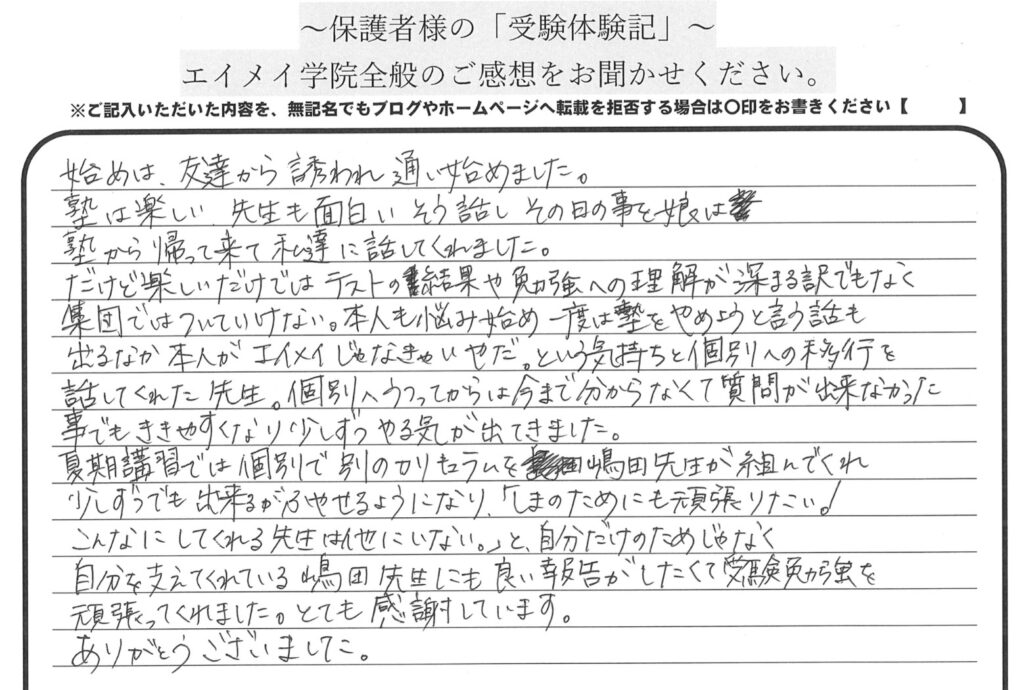 ～保護者様の「受験体験記」～
エイメイ学院全般のご感想をお聞かせください。
※ご記入いただいた内容を、無記名でもブログやホームページへ転載を拒否する場合は〇印をお書きください【　　】
始めは、友達から誘われ通い始めました。
塾は楽しい、先生も面白い そう話し その日の事を娘は
塾から帰って来て私達に話してくれました。
だけど楽しいだけではテストの結果や勉強への理解が深まる訳でもなく
集団ではついていけない。本人も悩み始め一度は塾をやめようと言う話も
出るなか本人がエイメイじゃなきゃいやだ。という気持ちと個別への移行を
話してくれた先生。個別へうつってからは今まで分からなくて質問が出来なかった
事でもききやすくなり少しずつやる気が出てきました。
夏期講習では個別で別のカリキュラムを嶋田先生が組んでくれ
少しずつでも出来るがふやせるようになり、「しまのためにも頑張りたい!
こんなにしてくれる先生は他にいない。」と、自分だけのためじゃなく
自分を支えてくれている嶋田先生にも良い報告がしたくて受験勉強を
頑張ってくれました。とても感謝しています。
ありがとうございました。